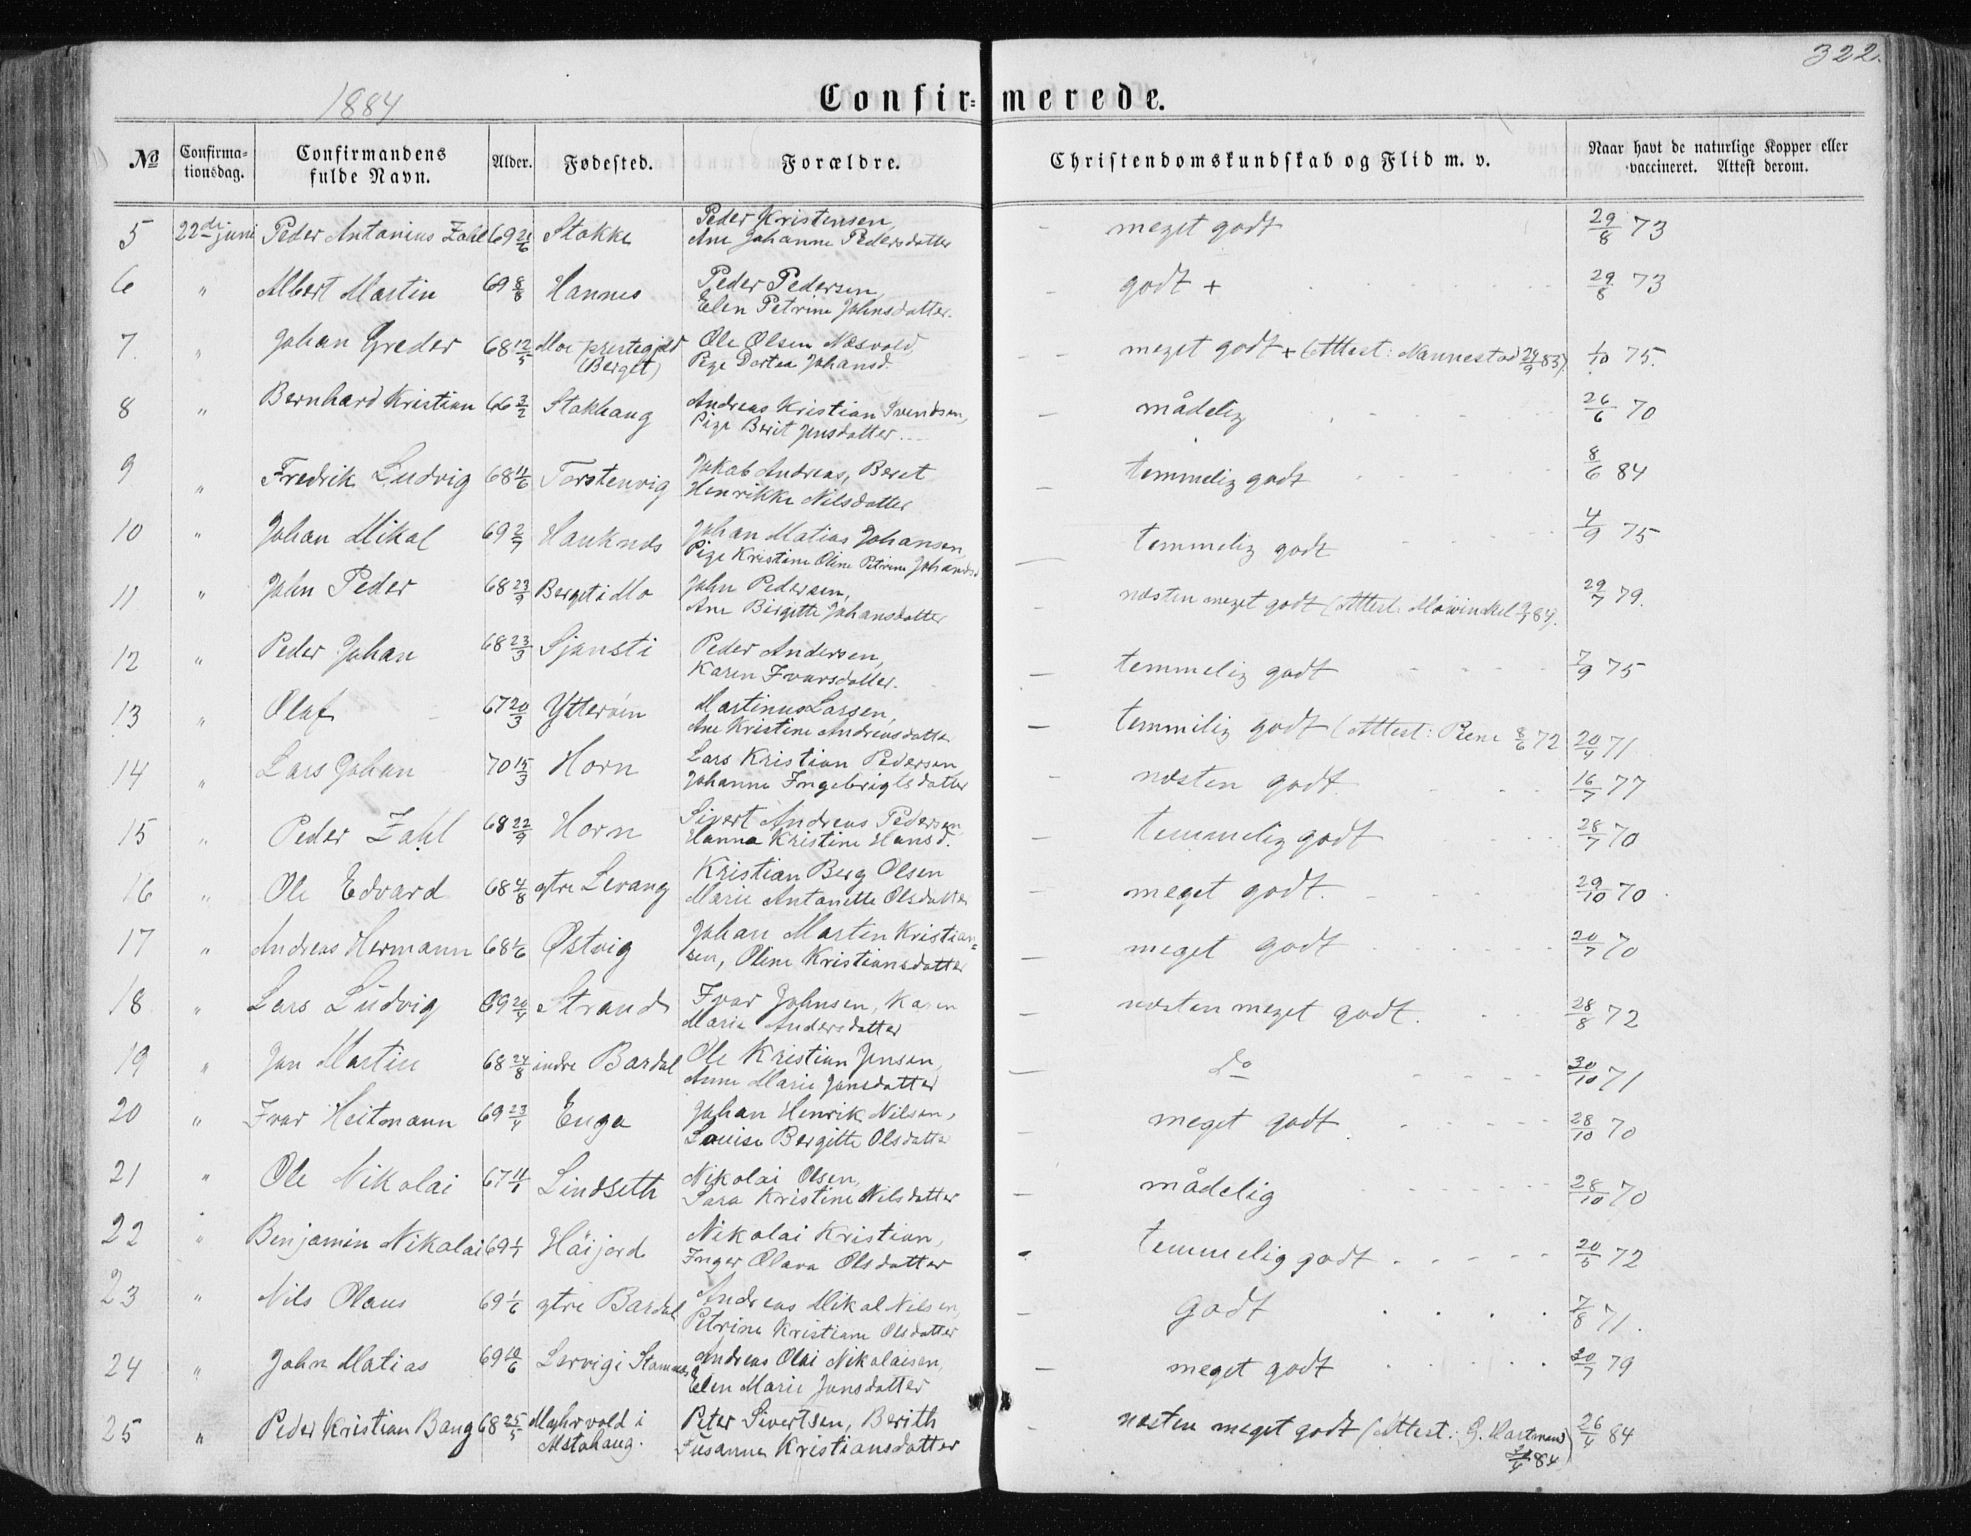 322.
1884
Confir= merede.
No Confirma- tionsdag. Confirmandens fulde Navn. Alder. Fødested. Forældre. Christendomskundskab og Flid m. v. Naar havt de naturlige Kopper eller vaccineret. Attest derom.
5 22de juni Peder Antonius Zahl 69 Stokke Peder Kristensen, Ane Johanne Pedersdatter — meget godt 29/8 73
6 " Albert Martin 69 8/8 Hannes Peder Pedersen, Elen Petrine Johnsdatter. — godt + 29/8 73
7. " Johan Greder 68 12/5 Moe prestegjeld (Berget) Ole Olsen Næsvold, Pige Dortea Johansd. — meget godt + (Attest: Nannestad 83) 1/10 75.
8 " Bernhard Kristian 66 3/2 Stokhaug Andreas Kristian Svendsen, Pige Berit Jensdatter — mådelig 26/6 70
9 " Fredrik Ludvig 68 11/6 Torstenvig Jakob Andreas, Beret Henrikke Nilsdatter — temmelig godt 8/6 84
10 " Johan Mikal 69 2/7 Hauknes Johan Matias Johansen, Pige Kristine Oline Petrine Johansd. — temmelig godt 4/9 75
11 " John Peder 68 23/9 Berget i Mo John Pedersen, Ane Birgitte Johansdatter — næsten meget godt (Attest: Mowinckel 84). 29/7 79.
12 " Peder Johan 68 23/3 Sjønsti Peder Andersen, Karen Ivarsdatter. — temmelig godt 7/9 75
13 " Olaf 67 20/3 Ytterøin Martinus Larsen, Ane Kristine Andreasdatter — temmilig godt (Attest: 8/6 72 20/4 71
14 " Lars Johan 70 15/3 Horn Lars Kristian Pedersen Johanne Ingebrigtsdatter — næsten godt. 16/7 77
15 " Peder Zahl 68 22/9 Horn Sivert Andreas Pedersen, Hanna Kristine Hansd. — temmelig godt 28/7 70
16 " Ole Edvard 68 4/8 ytre Levang Kristian Berg Olsen Marie Antonette Olsdatter — meget godt. 29/10 70
17 " Andreas Hermann 68 1/6 Østvig Johan Martin Kristian= sen, Oline Kristiansdatter — meget godt 20/7 70
18 " Lars Ludvig 69 20/4 Strand Ivar Johnsen, Karen Marie Andersdatter — næsten meget godt. 28/8 72
19 " Jan Martin 68 24/8 indre Bardal Ole Kristian Jensen, Anne Marie Jansdatter — do 30/10 71
20 " Ivar Heitmann 69 23/4 Enga Johan Henrik Nilsen, Louise Bergitte Olsdatter — meget godt 28/10 70
21 " Ole Nikolai 67 11/1 Lindseth Nikolai Olsen, Sara Kristine Nilsdatter — mådelig 28/10 70
22 " Benjamin Nikolai 69 1/7 Höijord Nikolai Kristian, Inger Olava Olsdatter temmelig godt 20/5 72
23 " Nils Olaus 69 1/6 ytre Bardal Andreas Mikal Nilsen, Petrine Kristiane Olsdatter — godt 7/8 71.
24 " John Matias 69 10/6 Lervig i Stamnes Andreas Olai Nikolaisen, Elen Marie Jonsdatter — meget godt 20/7 79
25 " Peder Kristian Bang 68 25/5 i Alstahaug. Peter Sivertsen, Berith Susanne Kristiansdatter — næsten meget godt (Attest: G. Hartman 84) 26/4 84